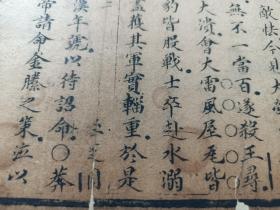 敵快今見大
無不一當百。遂殺王尋。
大潰會大雷風屋瓦皆
豹皆股戰士卒赴水溺
蓋獲其軍實輜重。於是
漢年號以待詔命。〇莽
帝請命金縢之策。並以